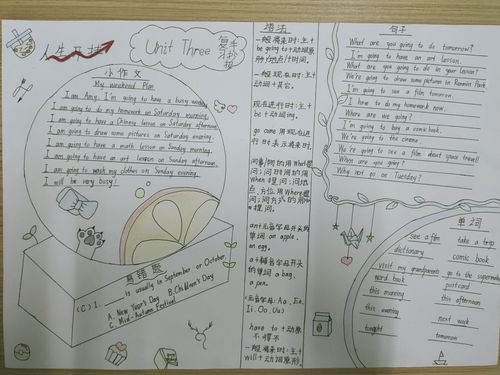 人生开挂
Unit Three
复习
手抄报
小作文
My weekend Plan
I am Amy. I'm going to have a busy weekend.
I am going to do my homework on Saturday morning.
I am going to have a Chinese lesson on Saturday afternoon.
I am going to draw some pictures on Saturday evening.
I am going to have a math lesson on Sunday morning.
I am going to have an art lesson on Sunday afternoon.
I am going to wash my clothes on Sunday evening.
I will be very busy!
易错题
(C) 1. ____ is usually in September or October
A. New Year's Day B. Children's Day
C. Mid-Autumn Festival
语法
一般将来时:主+
be going to+动词原
形+地点/+时间.
一般现在时:主+
动词+其它.
现在进行时:主+
be+动词ing.
go come 用现在进
行时表示将来时.
问事/物的用What提
问;问时间的用
When提问;问地
点、方位用Where提
问;问方式的用How
提问.
an+元音字母开头的
单词 an apple.
an egg.
a+辅音字母开头
的单词 a bag.
a pen.
(元音字母: Aa, Ee,
Ii. Oo, Uu)
have to +动原
不得不
一般将来时:主+
will+动词原形.
句子
What are you going to do tomorrow?
I'm going to have an art lesson.
What are you going to do in your lesson?
We're going to draw some pictures in Renmin Park.
I'm going to see a film tomorrow.
I have to do my homework now.
Where are we going?
I'm going to buy a comic book.
We're going to the cinema
We're going to see a film about space travel!
When are you going?
Why not go on Tuesday?
单词
see a film
take a trip
dictionary
comic book
visit my grandparents
go to the supermarket
word book
postcard
this morning
this afternoon
this evening
next week
tonight
tomorrow